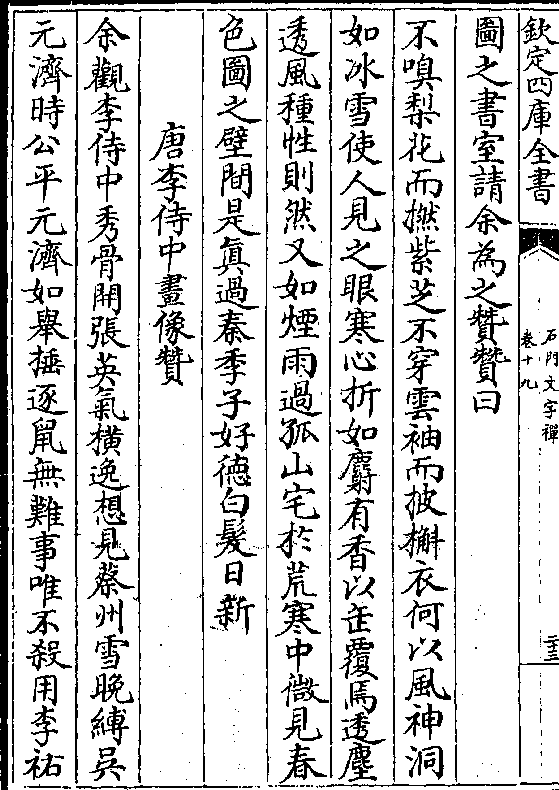 欽定四庫全書
石門文字禪
卷十九
二十三
圖之書室請余為之贊贊曰
不嗅梨花而撚紫芝不穿雲袖而披槲衣何以風神洞
如冰雪使人見之眼寒心折如麝有香以缶覆焉透塵
透風種性則然又如煙雨過孤山宅於荒寒中微見春
色圖之壁間是真過秦季子好德白髮日新
唐李侍中畫像贊
余觀李侍中秀骨開張英氣橫逸想見蔡州雪晚縛吳
元濟時公平元濟如舉棰逐鼠無難事唯不殺用李祐